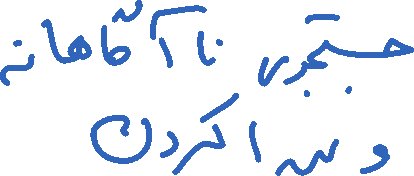 جستجوی ناآگاهانه
و پیدا کردن